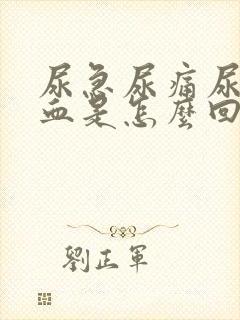 尿急尿痛尿
血是怎麼回
劉正軍